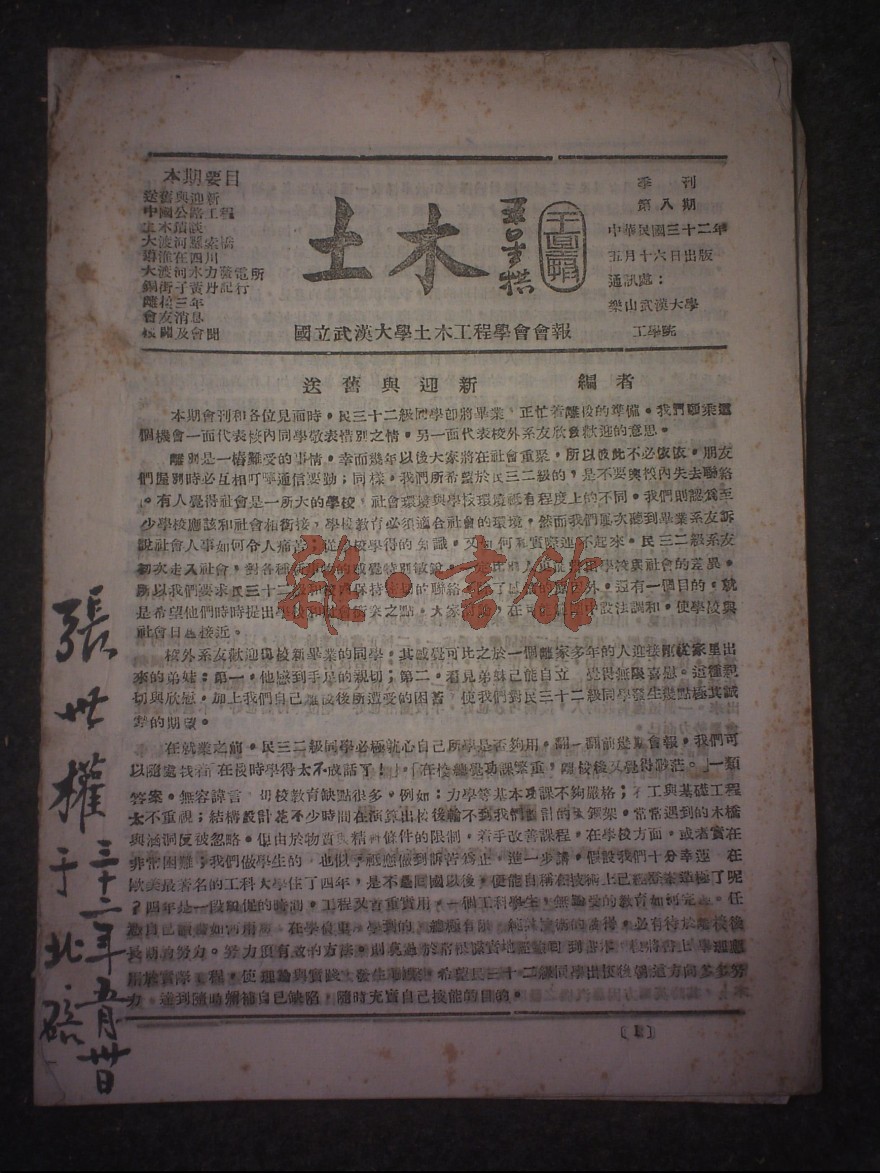 本期要目
送舊與迎新
中國公路工程
土木瑣談
大渡河懸索橋
導淮在四川
大渡河水力發電所
銅街子黃丹紀行
離校三年
會友消息
校聞及會聞
土木
王星拱
國立武漢大學土木工程學會會報
季刊
第八期
中華民國三十二年
五月十六日出版
通訊處：
樂山武漢大學
工學院
送舊與迎新 編者
本期會刊和各位見面時，民三十二級同學卽將畢業，正忙着離校的準備。我們願乘這
個機會一面代表校內同學敬表惜別之情，另一面代表校外系友欣致歡迎的意思。
離別是一樁難受的事情，幸而幾年以後大家將在社會重聚，所以彼此不必依依。朋友
們握別時必互相叮嚀通信要勤；同樣，我們所希望於民三十二級的，是不要與校內失去聯絡
。有人覺得社會是一所大的學校，社會環境與學校環境祇有程度上的不同。我們則認爲至
少學校應該和社會相銜接，學校教育必須適合社會的環境，然而我們屢次聽到畢業系友訴
說社會人事如何令人痛苦；從學校學得的知識，又如何和實際連不起來。民三十二級系友
初次走入社會，對各種
所以我們要求民三十二級和校內保持 聯絡 還有一個目的，就
是希望他們時時提出學校和社會衝突之點，大家 在可 設法調和，使學校與
社會日趨接近。
校外系友歡迎母校新畢業的同學，其感覺可比之於一個離家多年的人迎接剛從家里出
來的弟妹：第一，他感到手足的親切；第二，看見弟妹已能自立，覺得無限喜慰。這種親
切與欣慰，加上我們自己離校後所遭受的困難，使我們對民三十二級同學發生幾點極其誠
摯的期望。
在就業之前，民三二級同學必極躭心自己所學是否夠用。翻一翻前幾期會報，我們可
以隨處找着「在校時學得太不成話了！」「在校總覺功課繁重，離校後又覺得渺茫。」一類
答案。無容諱言，母校教育缺點很多，例如：力學等基本功課不夠嚴格；木工與基礎工程
太不重視；結構設計花不少時間在演算出校後輪不到我們設計的 鋼架，常常遇到的木橋
與涵洞反被忽略。但由於物質與精神條件的限制，着手改善課程，在學校方面，或者實在
非常困難；我們做學生的，也似乎祇應做到訴苦爲止，進一步講，假設我們十分幸運，在
歐美最著名的工科大學住了四年，是不是回國以後，便能自稱在技術上已經 了呢
？四年是一段和促的時間，工程又首重實用，一個工科學生，無論受的教育如何完 。任
長期的努力。努力須有效的方法，則莫過於常 實地
用於實際工程，使理論與實踐 發生 ，希望民三十二級同學出校後朝這方向多多努
力，達到隨時彌補自己缺陷，隨時充實自己技能的目的。
張世權
三十二年五月卅日
于北碚
雜·書館